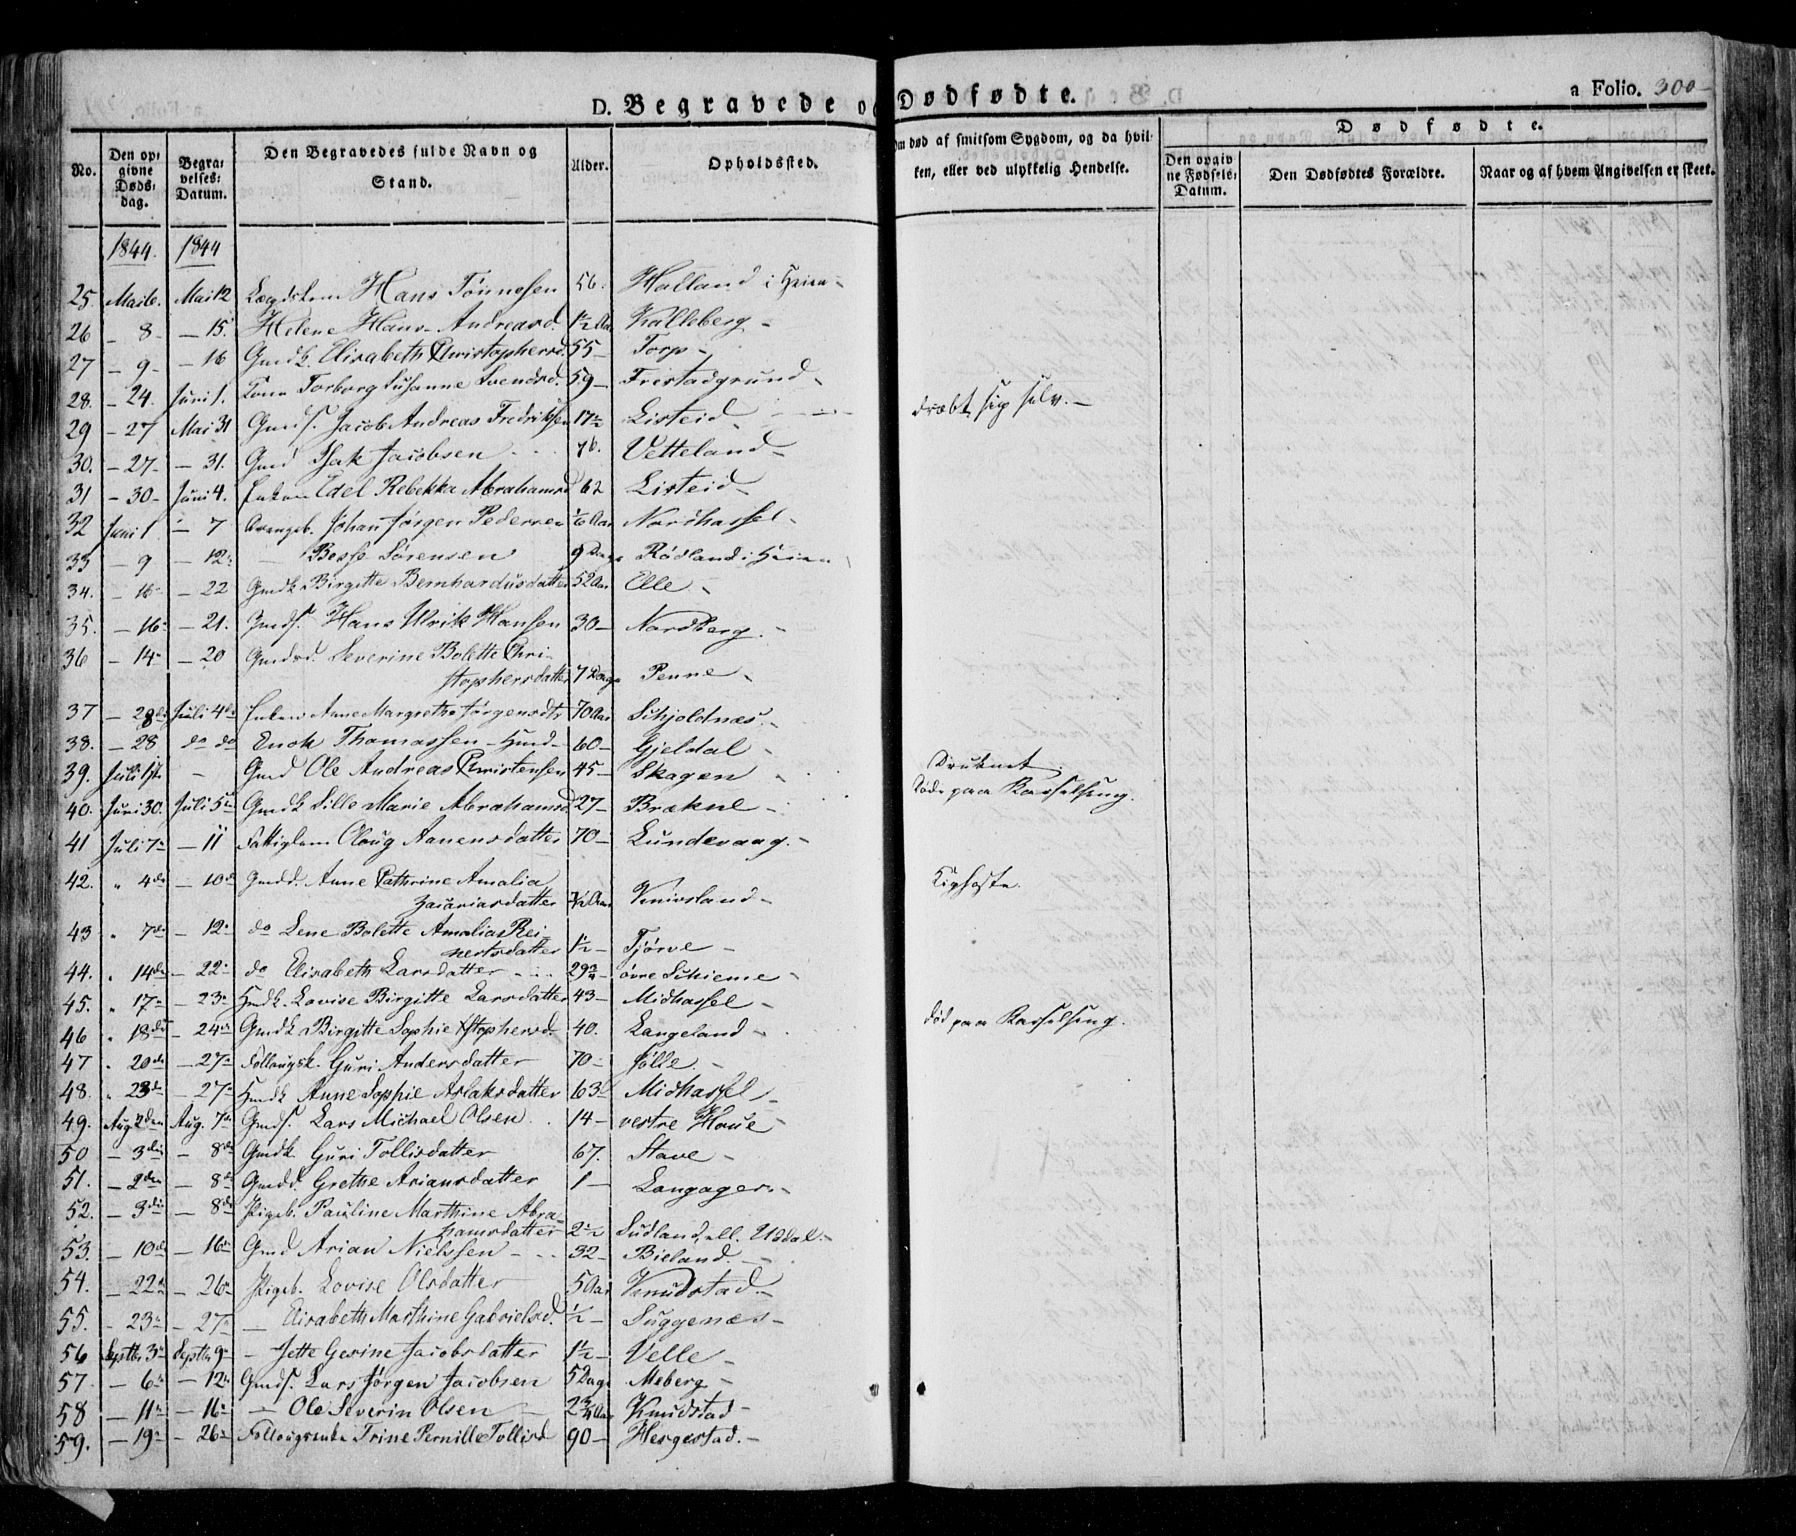 D. Begravede og Dødfødte.
a Folio. 300
No. Den opgivne Dødsdag. Begravelses: Datum. Den Begravedes fulde Navn og Stand. Alder. Opholdssted. Om død af smitsom Sygdom, og da hvilken, eller ved ulykkelig Hendelse. Dødfødte.
Den opgivne Fødsels: Datum. Den Dødfødtes Forældre. Naar og af hvem Angivelsen er skeet.
1844. 1844
25. Mai 6. Mai 12 Lægdslem Hans Tønnesen 56. Halland i Heien
26 - 8 - 15. Helene Hans Andreasd. 1½ Aar Kalleberg
27 - 9 - 16 Gmdk Elisabeth Christophersd. 55 - Torp
28. - 24. Juni 1. Kone Torborg Susanne Svendsd. 59 - Frestadgrund
29 - 27 Mai 31 Gmds. Jacob Andreas Fredriksen 17½ Listeid - dræbt sig selv.
30. - 27 - 31. Gmd Isak Jacobsen 76. Vetteland
31 - 30 - Juni 4. Enken Edel Rebekka Abrahamsd 62 Listeid
32 Juni 1 - 7 Johan Jørgen Pedersen 1/6 Aar Nordhassel
33 - 9 - 12 - Sørensen 9 Dage Rødland i Heien
34. - 16 - 22 Gmdk Birgitte Bernhardusdatter 52 Aar Elle
35. - 16 - 21. Gmds. Hans Ulrik Hansen 30 - Nordberg.
36 - 14 - 20 Gmdsd. Severine Bolette Chri-
stophersdatter 7 Dage Penne
37 - 28de Juli 4de Enken Anne Margrethe Jørgensdtr 70 Aar Schjoldnæs.
38. - 28 do do Enok Thomassen Hmd - 60 - Gjeldal
39. Juli 1ste - Gmd Ole Andreas Christensen 45 - Skagen - Druknet
40. Juni 30. Juli 5te Gmdk Sille Marie Abrahamsd 27 - Brækne - Døde paa Barselseng.
41 Juli 7 - 11 Fattiglem Olaug Aanensdatter 70 - Lundevaag.
42. " 4de - 10de Gmdd. Anne Cathrine Amalia
Zacariasdatter ½ Aar Knivsland - Kighoste.
43 " 7de - 12 do Lene Bolette Amalia Rei-
nertsdatter 1½ - Tjørve
44. " 14de - 22 do Elisabeth Larsdatter 29¾ - øvre Schieme
45. " 17 - 23 Hmdk. Lovise Birgitte Larsdatter 43 - Midhassel
46 " 18de - 24 Gmdk Birgitte Sophie Chstophersd. 40. Langeland - død paa Barselseng.
47 " 20de - 27 Follaugsk. Guri Andersdatter 70 - Jølle.
48. " 23de - 27 Hmdk Anne Sophie Aslaksdatter 63 Midhassel
49. Aug 2den Aug. 7de Gmds. Lars Michael Olsen 14 - vestre Haue
50 - 3die - 8de Gmdk Guri Tollisdatter 67. Stave
51. - 2den - 8de Gmdd Grethe Ariansdatter 1 - Langager
52. - 3die - 8de Pigeb. Pauline Marthine Abra-
hamsdatter 2½ Sudland, ell. Uddal.
53. - 10de - 16 Gmd Arian Nielssen 32 - Bieland.
54. - 22 - 26 Pigeb. Lovise Olsdatter 5 Aar Knudstad
55. - 23 - 27 - Elisabeth Marthine Gabrielsd. ½ - Suggenæs
56 Septbr 3 Septbr 9 - Jette Gerine Jacobsdatter 1½ - Velle
57. - 6 - 12 Gmds. Lars Jørgen Jacobsen 5 Dage Meberg
58 - 11 - 16 - Ole Severin Olsen 2¾ Aar Knudstad
59. - 19 - 26 Follaugsenke Trine Pernille Tollisd 90 - Hergestad.